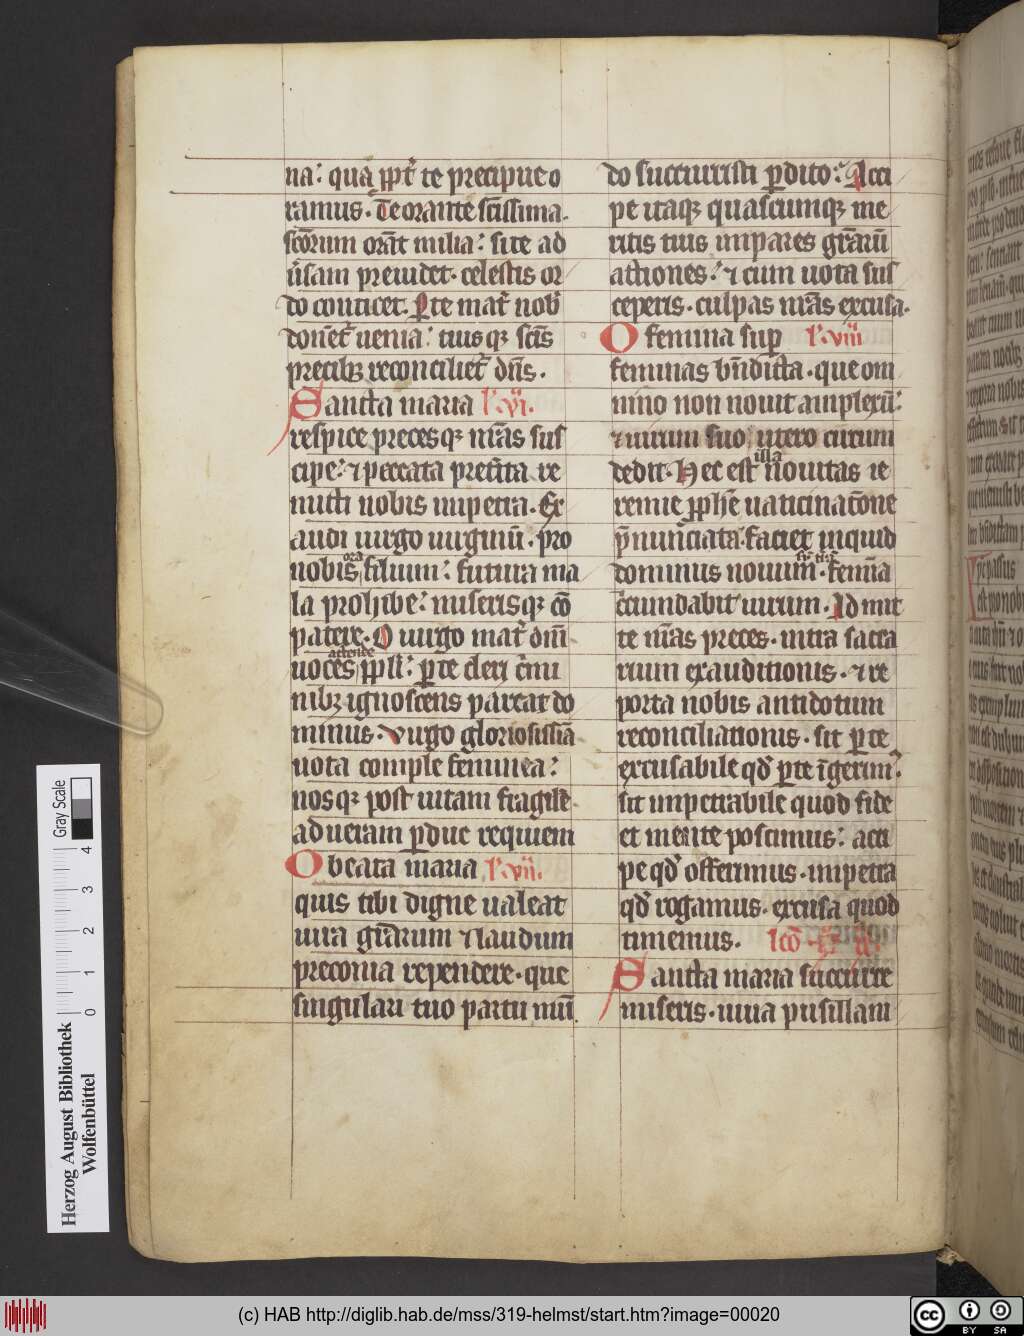 na: qua ppt̄ te precipue o
ramus. Te orante sc̄issima.
sc̄orum orāt milia: si te ad
ūsam preuidet. celestis or
do conticet. Per te mat̄ nob̄
donet̄ uenia: tuisq; sc̄is
precib; reconciliet̄ dn̄s.
Sancta maria l'. vi.
respice precesq; nr̄as sus
cipe: ⁊ peccata preterita re
mitti nobis impetra. Ex
audi uirgo uirginū. pro
nobis ora filium: futura ma
la prohibe: miserisq; cō
patere. O uirgo mat̄ dn̄i
uoces attende ppl̄i: per te cleri c̄mi
nib; ignoscens parcat do
minus. Virgo gloriosissīa
uota comple feminea:
nosq; post uitam fragilē
ad ueram perduc requiem
O beata maria l'. vii.
quis tibi digne ualeat
iura gr̄arum ⁊ laudum
preconia rependere. que
singulari tuo partu mū
do succurristi perdito: Acci
pe itaq; quascumq; me
ritis tuis impares gr̄arū
actiones: ⁊ cum uota sus
ceperis. culpas nr̄as excusa.
O femina super l'. viii
feminas bn̄dicta. que om
nino non nouit amplexū:
⁊ uirum suo utero circum
dedit. Hec est illa nouitas ie
remie pphē uaticinatōne
prenunciata. faciet inquid
dominus nouum sup̄ trā. femīa
circumdabit uirum. Admit
te nr̄as preces. intra sacra
rium exauditionis. ⁊ re
porta nobis antidotum
reconciliationis. sit per te
excusabile qd̄ per te īgerim:
fit impetrabile quod fide
et mente poscimus: acci
pe qd̄ offerimus. impetra
qd̄ rogamus. excusa quod
timemus.
Sancta maria succurre
miseris. iuua pusillani
Gray Scale
0 1 2 3 4
Herzog August Bibliothek
Wolfenbüttel
(c) HAB http://diglib.hab.de/mss/319-helmst/start.htm?image=00020
cc BY SA